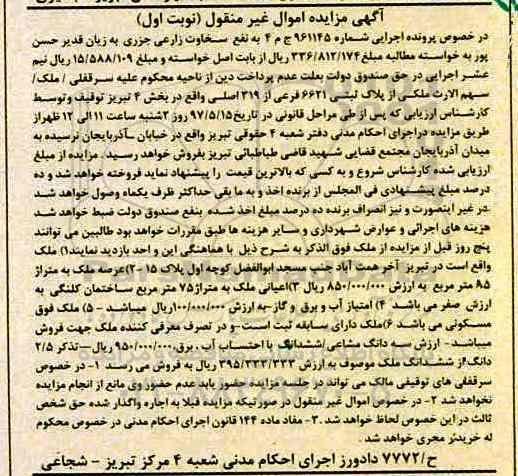 آگهی مزایده اموال غیر منقول (نوبت اول)
در خصوص پرونده اجرایی شماره ۹۶۱۱۴۵ ج م ۴ به نفع سخاوت زارعی جزری به زیان قدیر حسن
پور به خواسته مطالبه مبلغ ۳۳۶/۸۱۲/۱۷۴ ریال از بابت اصل خواسته و مبلغ ۱۵/۵۸۸/۱۰۹ ریال نیم
عشر اجرایی در حق صندوق دولت بعلت عدم پرداخت دین از ناحیه محکوم علیه سرقفلی / ملک/
سهم الارث ملکی از پلاک ثبتی ۶۶۲۱ فرعی از ۳۱۹ اصلی واقع در بخش ۴ تبریز توقیف و توسط
کارشناس ارزیابی که پس از طی مراحل قانونی در تاریخ ۹۷/۵/۱۵ روز ۲شنبه ساعت ۱۱ الی ۱۲ ظهر از
طریق مزایده دراجرای احکام مدنی دفتر شعبه ۴ حقوقی تبریز واقع در خیابان آذربایجان نرسیده به
میدان آذربایجان مجتمع قضایی شهید قاضی طباطبائی تبریز بفروش خواهد رسید. مزایده از مبلغ
ارزیابی شده کارشناس شروع و به کسی که بالاترین قیمت را پیشنهاد نماید فروخته خواهد شد و ده
درصد مبلغ پیشنهادی فی المجلس از برنده اخذ و به ما بقی حداکثر ظرف یکماه وصول خواهد شد
.در غیر اینصورت و نیز انصراف برنده ده درصد مبلغ اخذ شده بنفع صندوق دولت ضبط خواهد شد
هزینه های اجرائی و عوارض شهرداری و سایر هزینه ها طبق مقررات خواهد بود طالبین می توانند
پنج روز قبل از مزایده از ملک فوق الذکر به شرح ذیل با هماهنگی این و احد بازدید نمایند۱) ملک
واقع است در تبریز آخر همت آباد جنب مسجد ابوالفضل کوچه اول پلاک ۱۵ -۲)عرصه ملک به متراژ
۸۵ متر مربع به ارزش ۸۵۰/۰۰۰/۰۰۰ ریال ۳)اعیانی ملک به متراژ ۷۵ متر مربع ساختمان کلنگی به
ارزش صفر می باشد ۴) امتیاز آب و برق و گاز-به ارزش ۱۰۰/۰۰۰/۰۰۰ریال میباشد - ۵) ملک فوق
مسکونی می باشد ۶)ملک دارای سابقه ثبت است -و در تصرف معرفی کننده ملک جهت فروش
میباشد - ارزش سه دانگ مشاعی/ششدانگ با احتساب آب ، برق،۹۵۰/۰۰۰/۰۰۰ ریال-تذکر ۲/۵
دانگ از ششدانگ ملک موصوف به ارزش ۳۹۵/۳۳۳/۳۳۳ ریال به فروش می رسد ۱- در خصوص
سرقفلی های توقیفی مالک می تواند در جلسه مزایده حضور یابد عدم حضور وی مانع از انجام مزایده
نخواهد شد ۲- در خصوص اموال غیر منقول در صورتیکه مزایده قبلا به اجاره واگذار شده حق شخص
ثالث در این خصوص لحاظ خواهد شد .۳- مفاد ماده ۱۴۴ قانون اجرای احکام مدنی در خصوص محکوم
له خریدار مجری خواهد شد .
ح/۷۷۷۲ دادورز اجرای احکام مدنی شعبه ۴ مرکز تبریز - شجاعی